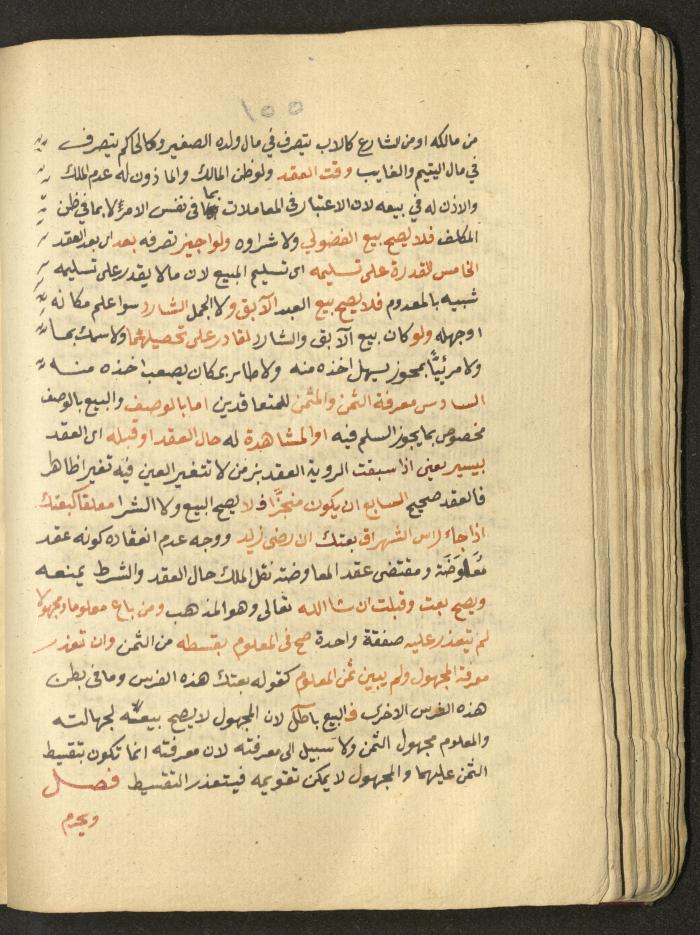 ١٥٥
من مالكه او من الشارع كالاب يتصرف في مال ولده الصغير وكالحاكم يتصرف
في مال اليتيم والغايب وقت العقد ولو ظن المالك والماذون له عدم الملك
والاذن له في بيعه لان الاعتبار في المعاملات بما في نفس الامر لا بما في ظن
المكلف فلا يصح بيع الفضولي ولا شراوه ولو اجيز تصرفه بعد اي بعد العقد
الخامس القدرة على تسليمه اي تسليم المبيع لان ما لا يقدر على تسليمه
شبيه بالمعدوم فلا يصح بيع العبد الآبق ولا الجمل الشارد سوا علم مكانه
او جهله ولو كان بيع الآبق والشارد لقادر على تحصيلهما ولا سمك بما
ولا مرئيًا بمحوز يسهل اخذه منه ولا طاير بمكان يصعب اخذه منه
السادس معرفة الثمن والمثمن للمتعاقدين اما بالوصف والبيع بالوصف
مخصوص بما يجوز السلم فيه او المشاهدة له حال العقد او قبله اي العقد
بيسير يعني اذا سبقت الروية العقد بزمن لا تتغير العين فيه تغيرا ظاهرا
فالعقد صحيح السابع ان يكون منجزًا فلا يصح البيع ولا الشرا معلقا كبعتك
اذا جاء راس الشهر او بعتك ان رضي زيد ووجه عدم انعقاده كونه عقد
معاوضة ومقتضى عقد المعاوضة نقل الملك حال العقد والشرط يمنعه
ويصح بعت وقبلت ان شا الله تعالى وهو المذهب ومن باع معلوما ومجهولا
لم يتعذر عليه صفقة واحدة صح في المعلوم بقسطه من الثمن وان تعذر
معرفة المجهول ولم يبين ثمن المعلوم كقوله بعتك هذه الفرس وما في بطن
هذه الفرس الاخرى فالبيع باطل لان المجهول لا يصح بيعه لجهالته
والمعلوم مجهول الثمن ولا سبيل الى معرفته لان معرفته انما تكون بتقسيط
الثمن عليهما والمجهول لا يمكن تقويمه فيتعذر التقسيط فصل
ويحرم